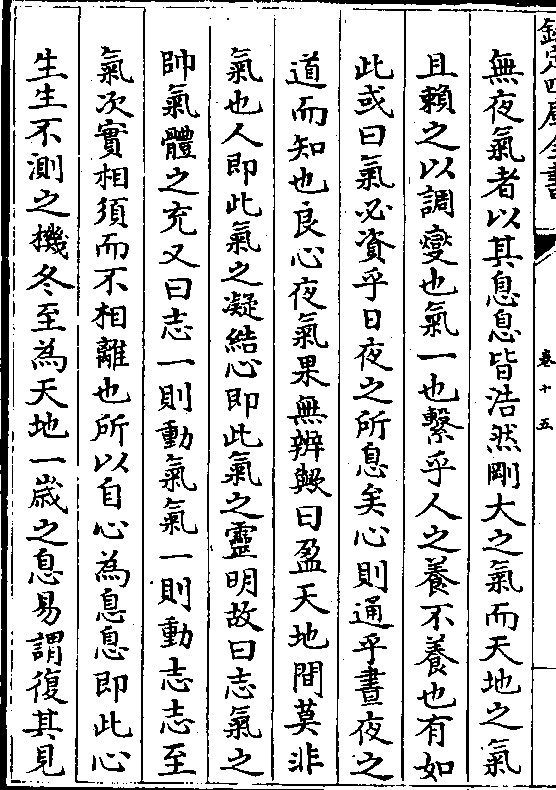 欽定四庫全書
卷十五
無夜氣者以其息息皆浩然剛大之氣而天地之氣
且賴之以調燮也氣一也繫乎人之養不養也有如
此或曰氣必資乎日夜之所息矣心則通乎晝夜之
道而知也良心夜氣果無辨歟曰盈天地間莫非
氣也人即此氣之凝結心即此氣之靈明故曰志氣之
帥氣體之充又曰志一則動氣氣一則動志志至
氣次實相須而不相離也所以自心為息息即此心
生生不測之機冬至為天地一歲之息易謂復其見